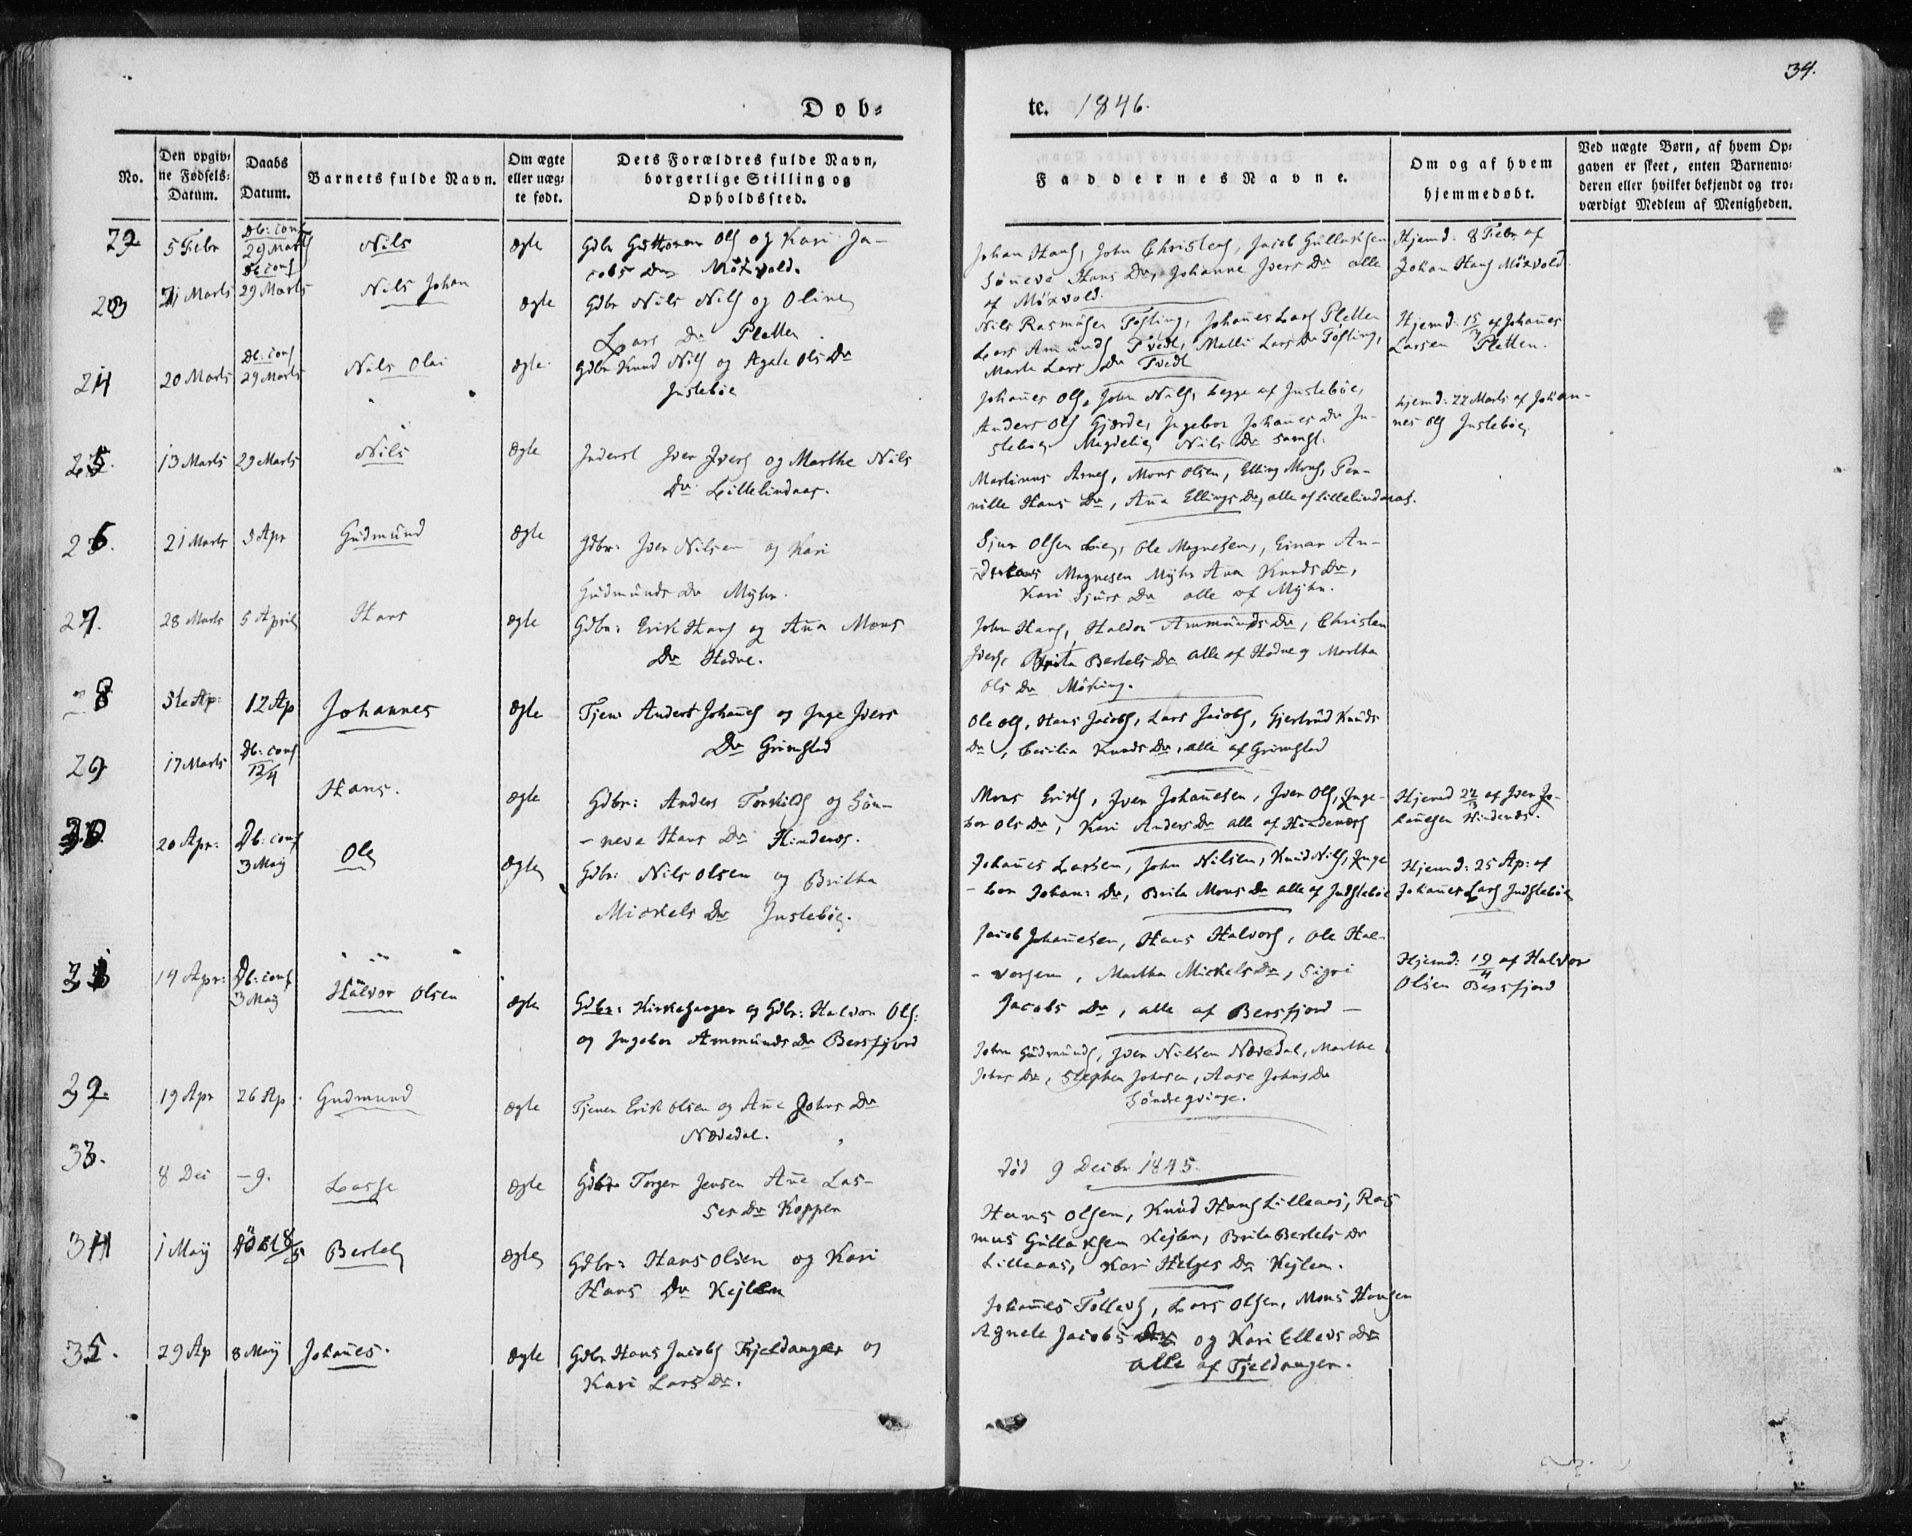 34.
Døb-
te. 1846.
No.
Den opgiv-
ne Fødsels-
Datum.
Daabs
Datum.
Barnets fulde Navn.
Om ægte
eller uæg-
te født.
Dets Forældres fulde Navn,
borgerlige Stilling og
Opholdssted.
Faddernes Navne.
Om og af hvem
hjemmedøbt.
Ved uægte Børn, af hvem Op-
gaven er skeet, enten Barnemo-
deren eller hvilket bekjendt og tro-
værdigt Medlem af Menigheden.
22 5 Febr Db: conf 29 Marts Nils Ægte Gdbr Guttorm Ols og Kari Ja-
cobs Dr Möxvold.
Johan Hans, John Christens, Jacob Gullaksen
Söneve Hans Dr, Johanne Ivers Dr alle
af Möxvold.
Hjemd: 8 Febr af
Johan Hans Möxvold
23 11 Marts Db conf 29 Marts Nils Johan Ægte Gdbr Nils Nils og Oline
Lars Dr Pletten
Nils Rasmusen Töfting, Johanes Lars Pletten
Lars Amunds Tvedt, Malli Lars Dr Töfting,
Marte Lars Dr Tvedt
Hjemd: 15/3 af Johanes
Larsen Pletten.
24 20 Marts Db: conf 29 Marts Nils Olai Ægte Gdbr Knud Nils og Agate Ols Dr
Instebøe
Johanes Ols, John Nils, begge af Instebøe,
Anders Ols Gjerde, Ingebor Johanes Dr In-
stebøe Magdeli Nils Dr samst.
hjemd: 22 Marts af Johan-
nes Ols Instebøe
25. 13 Marts 29 Marts Nils Ægte Inderst Iver Ivers og Marthe Nils
Dr Lillelindaas.
Martinus Arnes, Mons Olsen, Elling Mons, Per-
nille Hans Dr, Ana Ellings Dr, alle af Lillelindaas.
26. 21 Marts 5 Apr Gudmund Ægte Gdbr: Iver Nilsen og Kari
Gudmunds Dr Myhr.
Sjur Olsen Ole Magnesen, Einar An-
Magnesen Myhr Ana Knuds Dr,
Kari Sjurs Dr alle af Myhr.
27. 28 Marts 5 April Hans Ægte Gdbr: Erik Hans og Ana Mons
Dr Hodne.
John Hans, Haldor Ammunds Dr, Christen
Ivers, Brita Bertels Dr alle af Hodne og Martha
Ols Dr Möking.
28 5te Ap 12 Ap Johannes Ægte Tjen: Anders Johanes og Inge Ivers
Dr Grimstad
Ole Ols, Hans Jacobs, Lars Jacobs, Gjertrud Knuds
Dr, Cecilia Knuds Dr, alle af Grimstad
29 17 Marts Db: conf 12/4 Hans. Ægte Gdbr: Anders Torkilds og Sön-
-neve Hans Dr Hindenæs.
Mons Eriks, Iver Johanesen, Iver Ols, Inge-
bor Ols Dr, Kari Anders Dr alle af Hindenæs
Hjemd 22/3 af Iver Jo-
hanesen Hindenæs.
30. 20 Apr: Db: conf 3 May Ole Ægte Gdbr: Nils Olsen og Britha
Mickels Dr Instebøe.
Johanes Larsen, John Nilsen, Knud Nils, Inge
-bor Johan: Dr, Brita Mons Dr alle af Indstebøe
Hjemd: 25 Ap: af
Johanes Lars Indstebøe
31 14 Apr: Db: conf 3 May Halvor Olsen Ægte Gdbr: Kirkesanger og Gdbr: Halvor Ols:
og Ingebor Ammunds Dr Bersfjord
Jacob Johanesen, Hans Halvors, Ole Hal-
-vorsen, Martha Mickels Dr, Sigri
Jacobs Dr, alle af Bersfjord
Hjemd: 19/4 af Halvor
Olsen Bersfjord
32. 19 Apr 26 Ap. Gudmund Ægte Tjener Erik Olsen og Ane Johns Dr
Nævedal.
John Gudmunds, Iver Nilsen Nævedal, Marthe
Johns Dr, Stephen Johnsen, Aase Johns Dr
Söndreqvinge.
33. 8 Dec -9. Lasse Ægte Gdbr Torger Jensen Ane Las-
ses Dr Koppen
död 9 Decbr 1845.
34 1 May 8/5 Bertel Ægte Gdbr: Hans Olsen og Kari
Hans Dr Kejlen
Hans Olsen, Knud Hans Lilleaas, Ras
mus Gullaksen Kejlen, Brita Bertels Dr
Lilleaas, Kari Helges Dr Kejlen.
35. 29 Ap 8 May Johanes. Ægte Gdbr Hans Jacobs Fjeldanger og
Kari Lars Dr.
Johanes Tollevs, Lars Olsen, Mons Hansen
Agnete Jacobs Dr og Kari Ellevs Dr
alle af Fjeldanger.